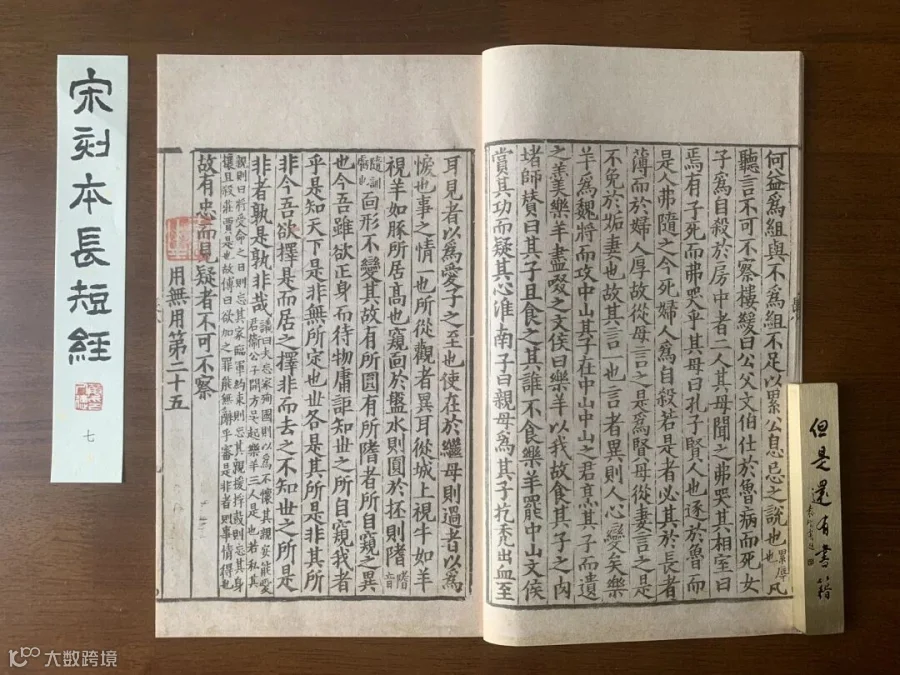 宋刻本長短經
七
何益爲組與不爲組不足以累公息忌之說也累辱也凡
聽言不可不察樓緩曰公父文伯仕於魯病而死女
子爲自殺於房中者二人其母聞之弗哭其相室曰
焉有子死而弗哭乎其母曰孔子賢人也逐於魯而
是人弗隨之今死婦人爲自殺若是者必其於長者
薄而於婦人厚故從母言之是爲賢母從妻言之是
不免於妬妻也故其言一也言者異則人心變矣樂
羊爲魏將而攻中山其子在中山中山之君烹其子而遺
之羮樂羊盡啜之文侯曰樂羊以我故食其子之肉
堵師賛曰其子且食之其誰不食樂羊罷中山文侯
賞其功而疑其心淮南子曰親母爲其子扢禿出血至
耳見者以爲愛子之至也使在於繼母則過者以爲
悷也事之情一也所從觀者異耳從城上視牛如羊
視羊如豚所居高也窺面於盤水則圓於杯則隋
面形不變其故有所圓有所隋者所自窺之異
也今吾雖欲正身而待物庸詎知世之所自窺我者
乎是知天下是非無所定也世各是其所是非其所
非今吾欲擇是而居之擇非而去之不知世之所是
非者孰是孰非哉議曰夫忘家殉國則以爲不懷其親安能愛君衛公子開方吳起樂羊三人是也若私其
親則曰將受命之日則忘其家臨軍約束則忘其親援枹鼓則忘其身穰苴殺莊賈是也故傳曰欲加之罪能無辭乎審是非者則事情得也
故有忠而見疑者不可不察
用無用第二十五
但是還有書籍
大数跨境